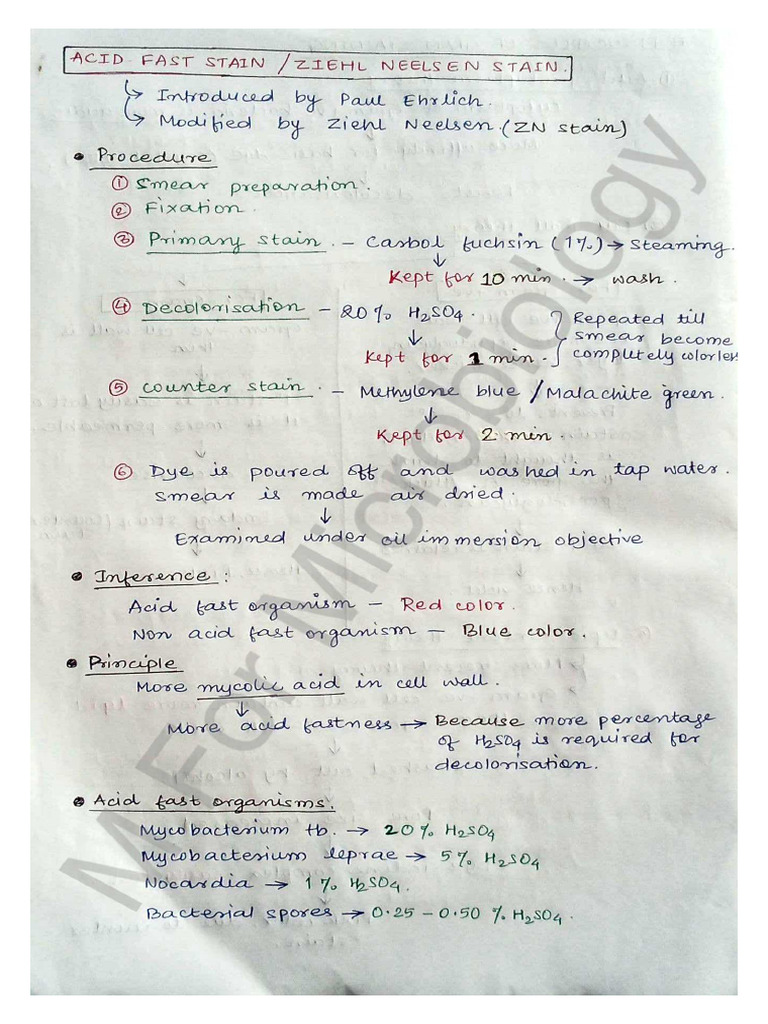 ACID FAST STAIN / ZIEHL NEELSEN STAIN.
↳ Introduced by Paul Ehrlich.
↳ Modified by Ziehl Neelsen. (ZN stain)
• Procedure
① Smear preparation.
② Fixation.
③ Primary stain. - Carbol fuchsin (1%) → Steaming.
↓
Kept for 10 min. → wash.
④ Decolorisation - 20% H₂SO₄.
↓
Kept for 1 min.
} Repeated till
smear become
completely colorless
⑤ counter stain. - Methylene blue / Malachite green.
↓
Kept for 2 min.
⑥ Dye is poured off and washed in tap water.
Smear is made air dried.
↓
Examined under oil immersion objective
• Inference :
Acid fast organism - Red color.
Non acid fast organism - Blue color.
• Principle
More mycolic acid in cell wall.
↓
More acid fastness → Because more percentage
of H₂SO₄ is required for
decolorisation.
• Acid fast organisms.
Mycobacterium tb. → 20% H₂SO₄
Mycobacterium leprae → 5% H₂SO₄
Nocardia → 1% H₂SO₄.
Bacterial spores → 0.25 - 0.50 % H₂SO₄.
M For Microbiology